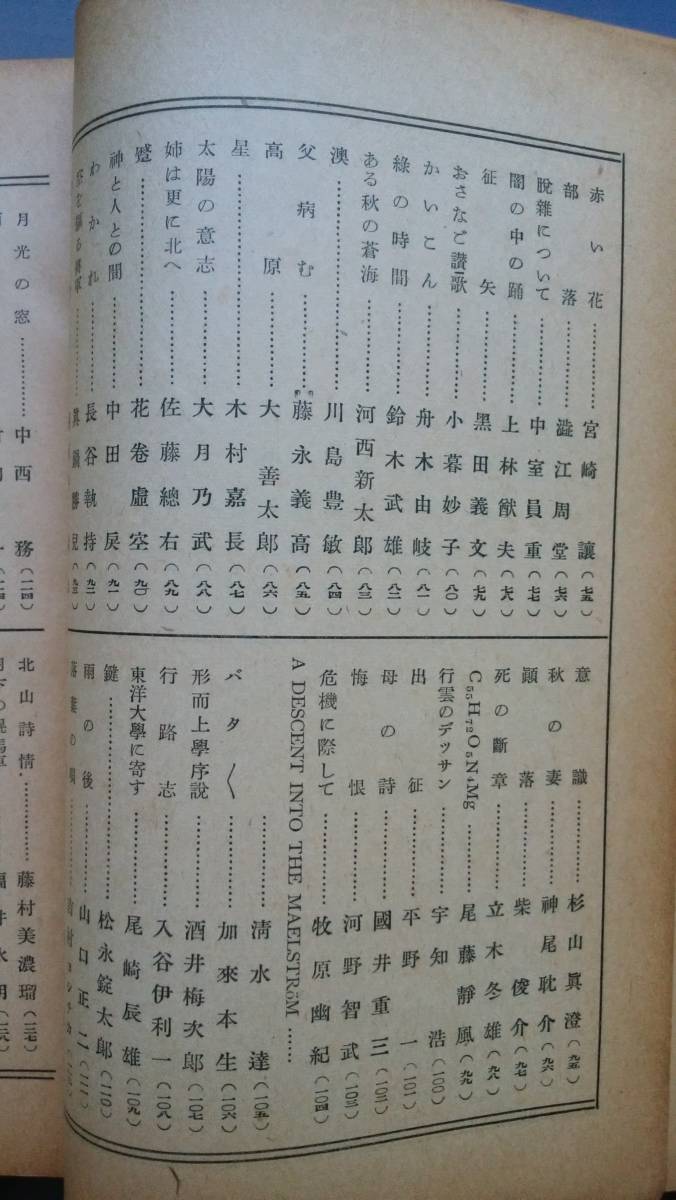 赤い花…………宮崎讓(七五)
部落…………澁江周堂(七六)
脫雜について…………中室員重(七七)
闇の中の踊…………上林猷夫(七八)
征矢…………黑田義文(七九)
おさなご讃歌…………小暮妙子(八〇)
かいこん…………舟木由岐(八一)
綠の時間…………鈴木武雄(八二)
ある秋の蒼海…………河西新太郎(八三)
澳…………川島豊敏(八四)
父病む…………藤永義高(八五)
高原…………大善太郎(八六)
星…………木村嘉長(八七)
太陽の意志…………大月乃武(八八)
姉は更に北へ…………佐藤總右(八九)
蹙…………花卷虛空(九〇)
神と人との間…………中田戻(九一)
わかれ…………長谷執持(九二)
眞鍋勝兒(九三)
意識…………杉山眞澄(九五)
秋の妻…………神尾耽介(九六)
顚落…………柴俊介(九七)
死の斷章…………立木冬雄(九八)
C₅₅H₇₂O₅N₄Mg…………尾藤靜風(九九)
行雲のデッサン…………宇知浩(一〇〇)
出征…………平野一(一〇一)
母の詩…………國井重三(一〇二)
悔恨…………河野智武(一〇三)
危機に際して…………牧原幽紀(一〇四)
A DESCENT INTO THE MAELSTRöM……
…………淸水達(一〇五)
バタ〱…………加來本生(一〇六)
形而上學序說…………酒井梅次郎(一〇七)
行路志…………入谷伊利一(一〇八)
東洋大學に寄す…………尾崎辰雄(一〇九)
鍵…………松永錠太郎(一一〇)
雨の後…………山口正二(一一一)
月光の窓…………中西務(一二四)
北山詩情…………藤村美濃瑠(一三七)